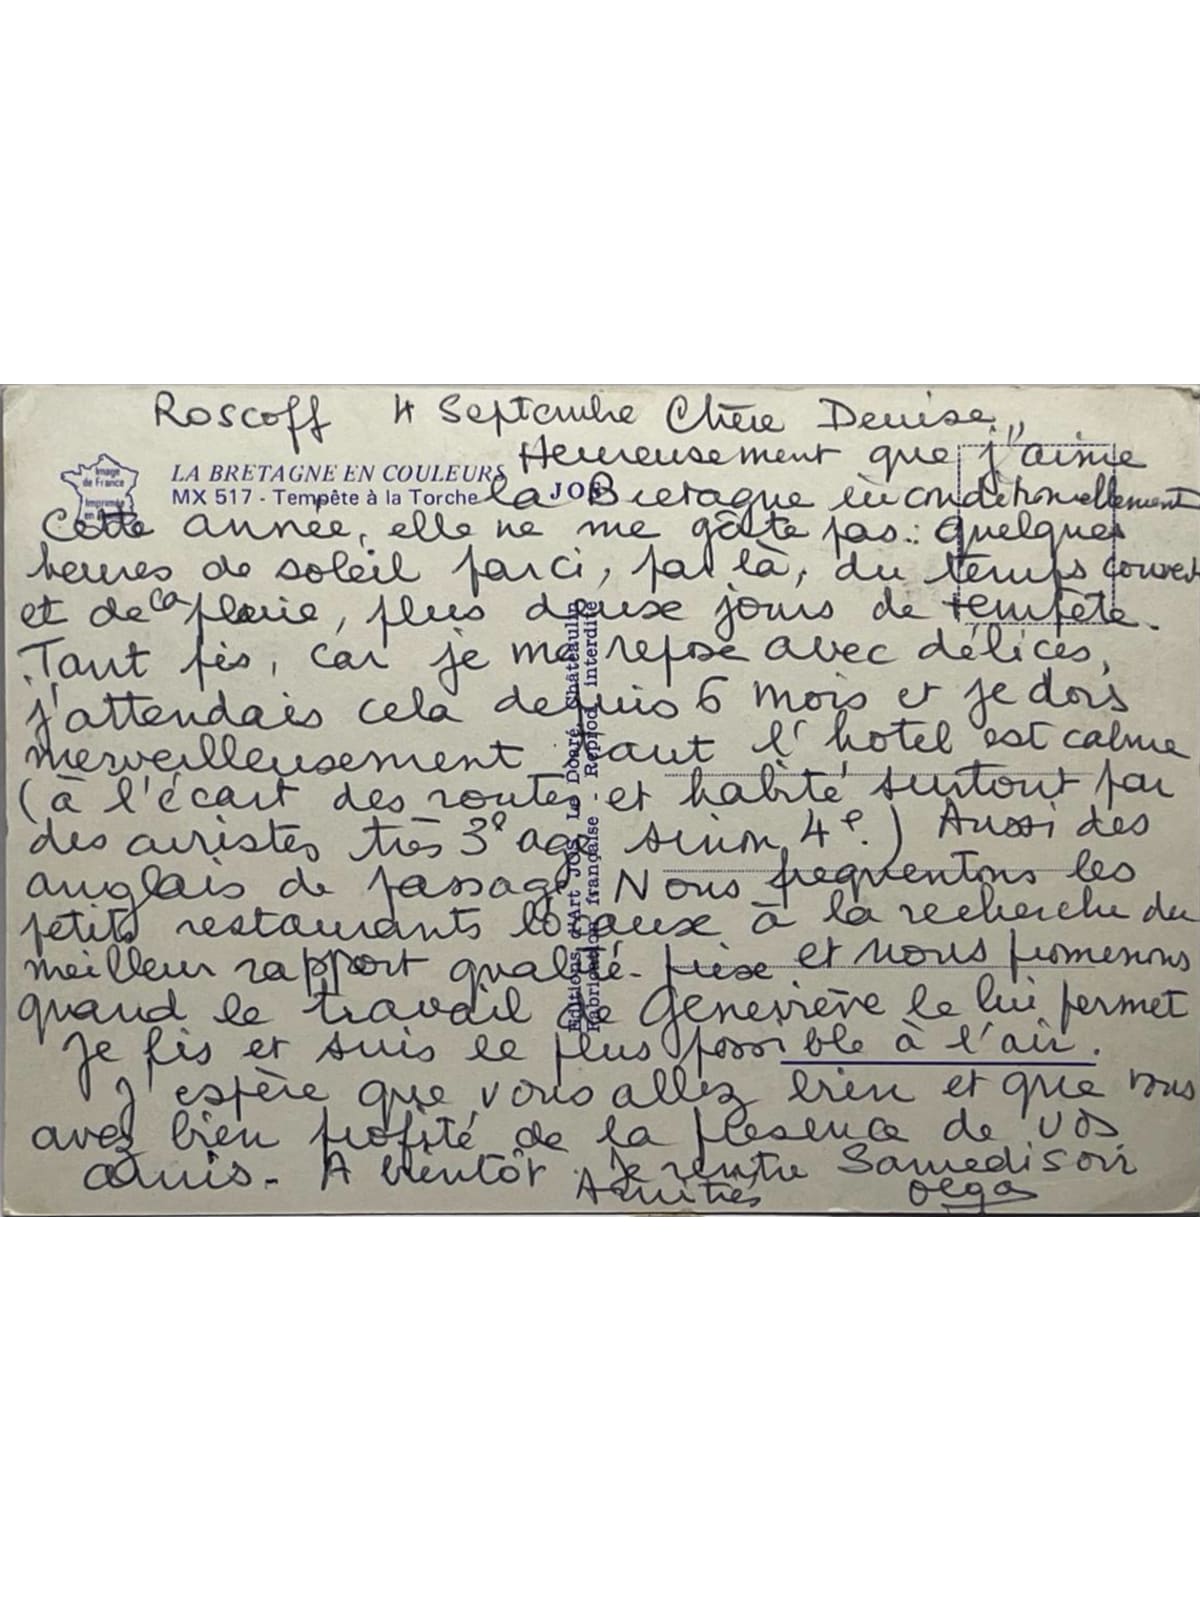 Roscoff 4 Septembre Chère Denise,
Heureusement que j'aime
la Bretagne inconditionnellement
Cette année, elle ne me gâte pas : quelques
heures de soleil parci, par là, du temps couvert
et de la pluie, plus deux jours de tempête.
Tant pis, car je me repose avec délices,
j'attendais cela depuis 6 mois et je dors
merveilleusement tant l'hotel est calme
(à l'écart des routes et habité surtout par
des touristes très 3e age sinon 4e.) Aussi des
anglais de passage. Nous frequentons les
petits restaurants locaux à la recherche du
meilleur rapport qualité-prix et nous promenons
quand le travail de Geneviève le lui permet
Je lis et suis le plus possible à l'air.
J'espère que vous allez bien et que vous
avez bien profité de la présence de vos
amis. A bientôt. Je rentre Samedi soir
Amitiés Olga
Image
de France
Imprimée
en
LA BRETAGNE EN COULEURS
MX 517 - Tempête à la Torche
JOS
Editions d'Art JOS Le Doaré, Châteaulin
Fabrication française - Reprod. interdite